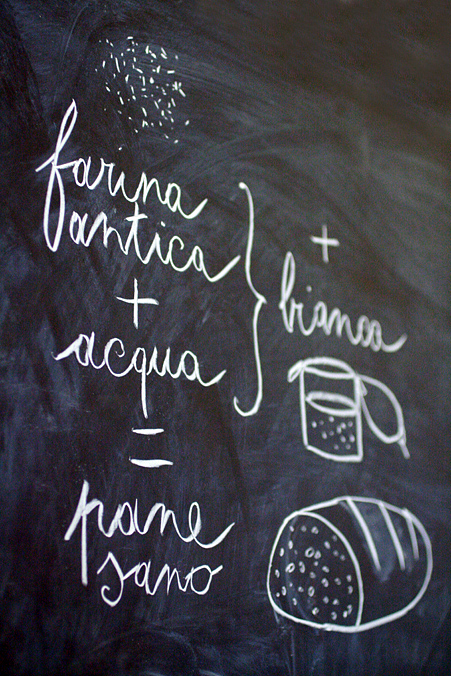 farina
antica
+
acqua
=
pane
sano
+
bianca